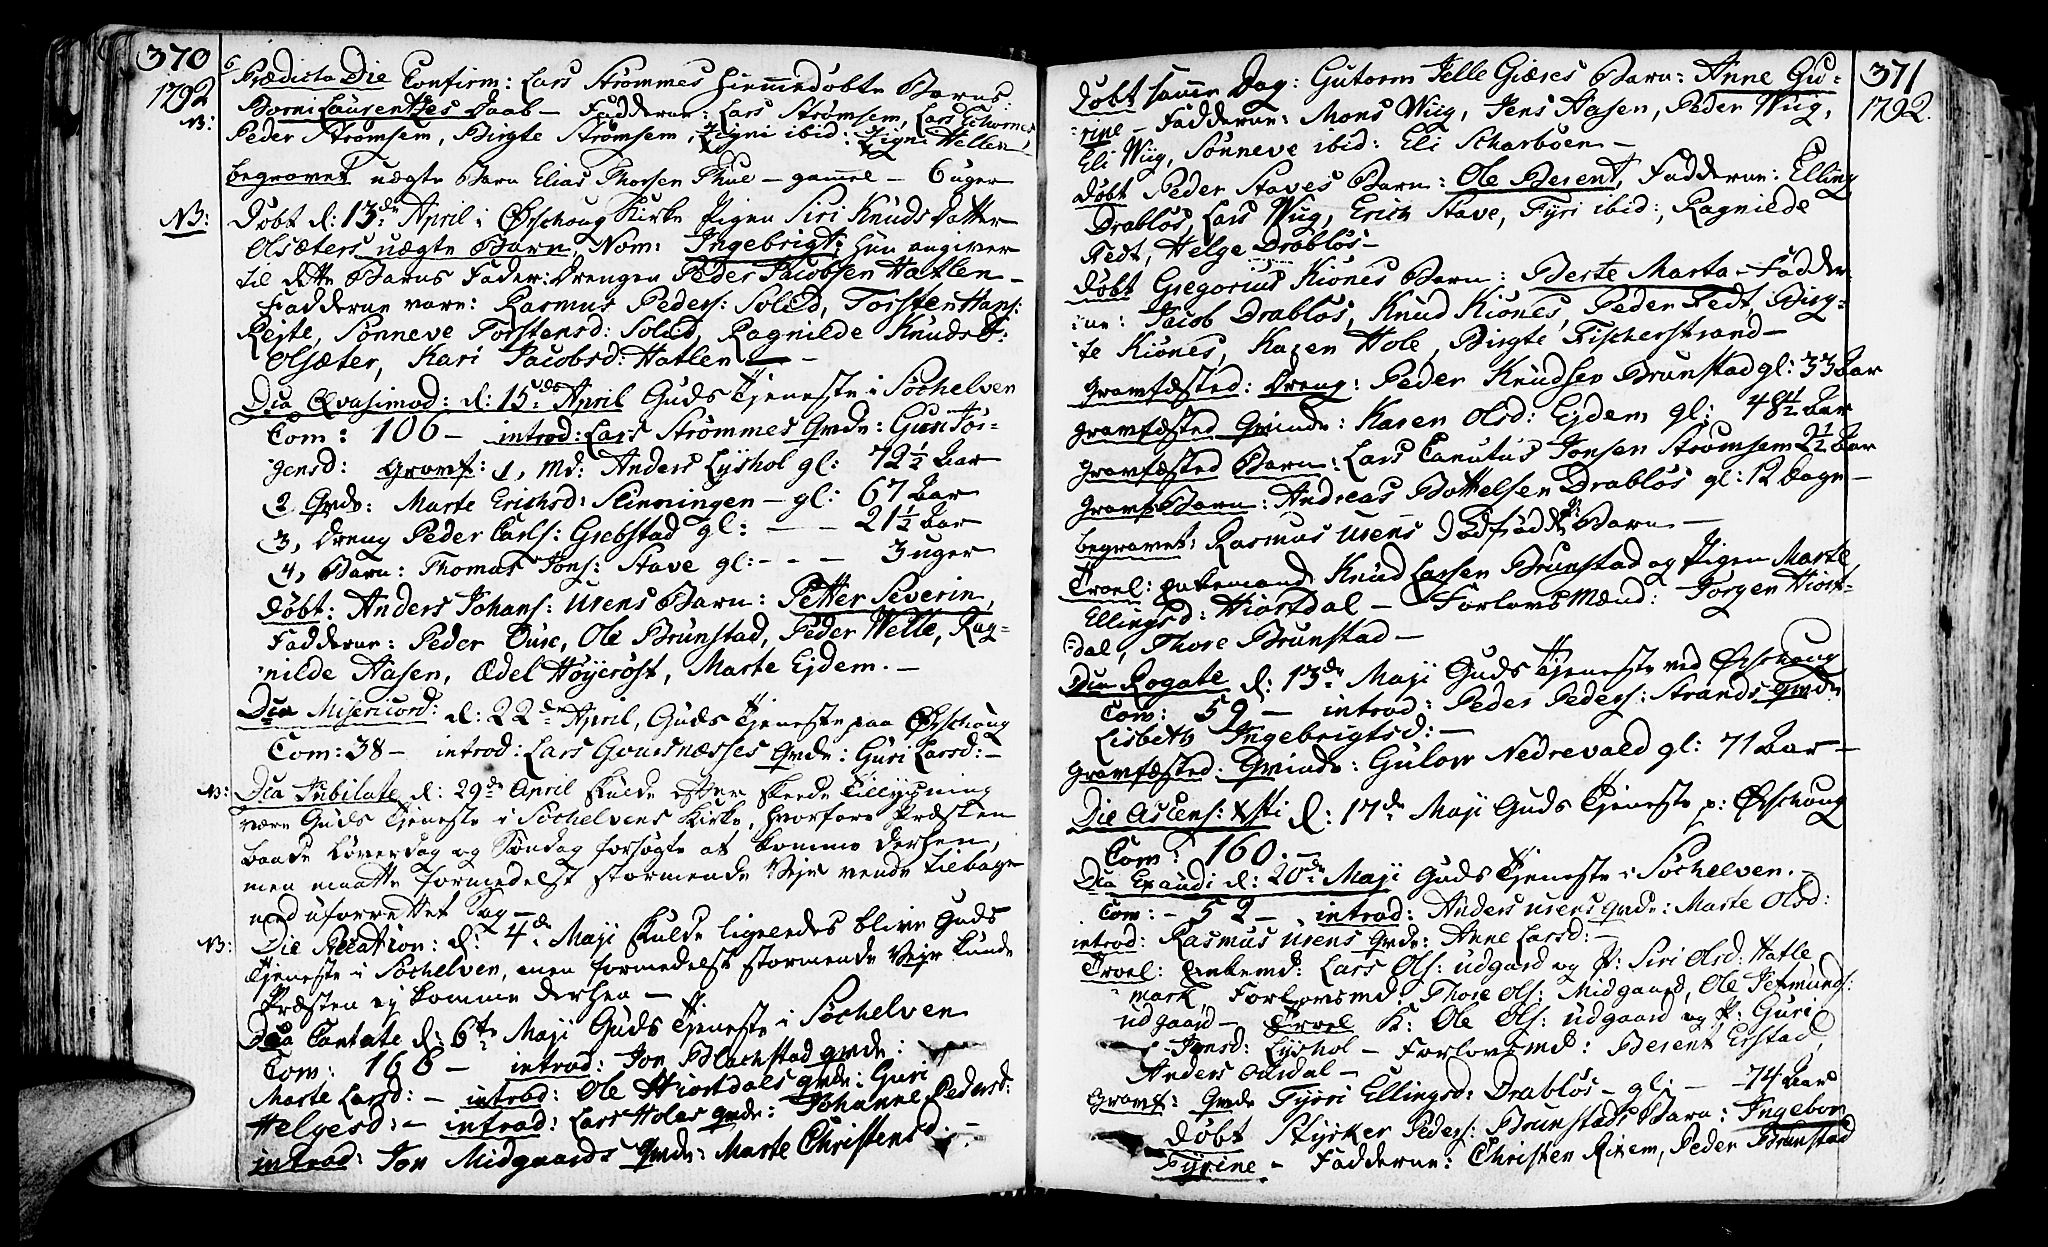 370
1792
Prædicto Die Confirm: Lars Strømmes hiemmedøbte Barns
Borni Laurentzes Daab - Fadderne: Lars Strømsem, Lars
NB:
Peder Strømsem, Birgte Strømsem, Signi ibid: Signi Hellen
begravet uægte Barn Elias Thorsen Thue - gammel - 6 uger
NB: Døbt d: 13de April i Ørschoug Kirke Pigen Siri Knuds datter
Olsæters uægte Barn, Nom: Ingebrigt; hun angiver
til dette Barns Fader: Drengen Peder Jacobsen Hatlen -
Fadderne vare: Rasmus Peders: Solud, Torsten Hans:
Rejte, Sønneve Torstensd: Solud, Ragnilde Knudsd:
Olsæter, Kari Jacobsd: Hatlen -
Dca Qvasimod: d: 15de April Guds Tjeneste i Søchelven
Com: 106 - introd: Lars Strømmes Qvde: Guri Jør-
gensd: Gravf: 1, Md: Anders Lyshol gl: 72 1/2 Aar
2 Qvde: Marte Erichsd: Slinningen - gl: 67 Aar
3, Dreng Peder Carls: Grebstad gl: - - 21 1/2 Aar
4, Barn: Thomas Jons: Stave gl: - - - 3 uger
Døbt: Anders Johans: Urens Barn: Petter Severin,
Fadderne: Peder Ouse, Ole Brunstad, Peder Welle, Rag-
nilde Aasen, Edel Høycrost, Marte Ejdem. -
Dca Misericord: d: 22de April, Guds Tjeneste paa Ørschoug
Com: 38 - introd: Lars Gausnæsses Qvde: Guri Larsd: -
NB: Dca Jubilate d: 29de April skulde efter skeede Tillysning
være Guds Tjeneste i Søchelvens Kirke, hvorfore Præsten
baade Løverdag og Søndag forsøgte at komme derhen,
men maatte formedelst stormende Vejr vende tilbage
med uforrettet Sag -
NB: Die Precation: d: 4de Maji skulde ligeledes blive Guds
Tjeneste i Søchelven, men formedelst stormende Vejr kunde
Præsten ej komme derhen -
Dca Cantate d: 6te Maji Guds Tjeneste i Søchelven
Com: 168 - introd: Jon Blachstad Qvde:
Marte Larsd: - introd: Ole Hiortdals Qvde: Guri
Helgesd: - introd: Lars Holes Qvde: Johanne Pedersd:
introd: Jon Midgaards Qvde: Marte Christensd: -
371
1792.
Døbt samme Dag: Gutorm Jelle Giæres Barn: Anne Gu-
rine - Fadderne: Mons Wiig, Jens Aasen, Peder Wiig,
Eli Wiig, Sønneve ibid: Eli Scharboen -
Døbt Peder Staves Barn: Ole Berent, Fadderne: Elling
Drabløs, Lars Wiig, Erich Stave, Fyri ibid:, Ragnilde
Fedt, Helge Drabløs -
Døbt Gregorius Kiønes Barn: Berte Marta - Fadder-
ne: Jacob Drabløs, Knud Kiønes, Peder Fedt, Birg-
te Kiønes, Karen Hole, Birgte Fischerstrand -
gravfæsted: Dreng: Peder Knudsen Brunstad gl: 33 Aar
gravfæsted Qvinde: Karen Olsd: Ejdem gl: 48 1/2 Aar
gravfæsted Barn: Lars Canutus Jonsen Strømsem 2 1/2 Aar
gravf: Barn: Andreas Bottelsen Drabløs gl: 12 dage -
begravet: Rasmus Urens dødfødt P: Barn -
Troel: Enkemand Knud Larsen Brunstad og Pigen Marte
Ellingsd: Hiortdal - Forlovs Mænd: Jørgen Hiort-
dal, Thore Brunstad -
Dca Rogate d: 13de Maji Guds Tjeneste ved Ørschoug
Com: 59 - introd: Peder Peders: Strands Qvde
Lisbeth Ingebrigtsd: -
gravfæsted: Qvinde: Gulow Nedrevald gl: 71 Aar -
Die Ascens: Xsti d: 17de Maji Guds Tjeneste p: Ørschoug
Com: 160. -
Dca Exaudi d: 20de Maji Guds Tjeneste i Søchelven. -
Com: - 52 - , introd: Anders Urens Qvde: Marte Olsd:
introd: Rasmus Urens Qvde: Anne Larsd: -
Troel: Enkemd: Lars Ols: Udgaard og P: Siri Olsd: Hatle
mark, Forlovsmd: Thore Ols: Midgaard, Ole Jetmunds:
Udgaard - Troel K: Ole Ols: Udgaard og P: Guri
Jonsd: Lyshol - Forlovsmd: Berent Erstad,
Anders Ousdal -
Gravf: Qvde Fyrri Ellingsd: Drabløs - gl: - 74 Aar
Døbt Styrker Peders: Brunstads Barn: Ingebor
Fyrine - Fadderne: Christen Rixem, Peder Brunstad